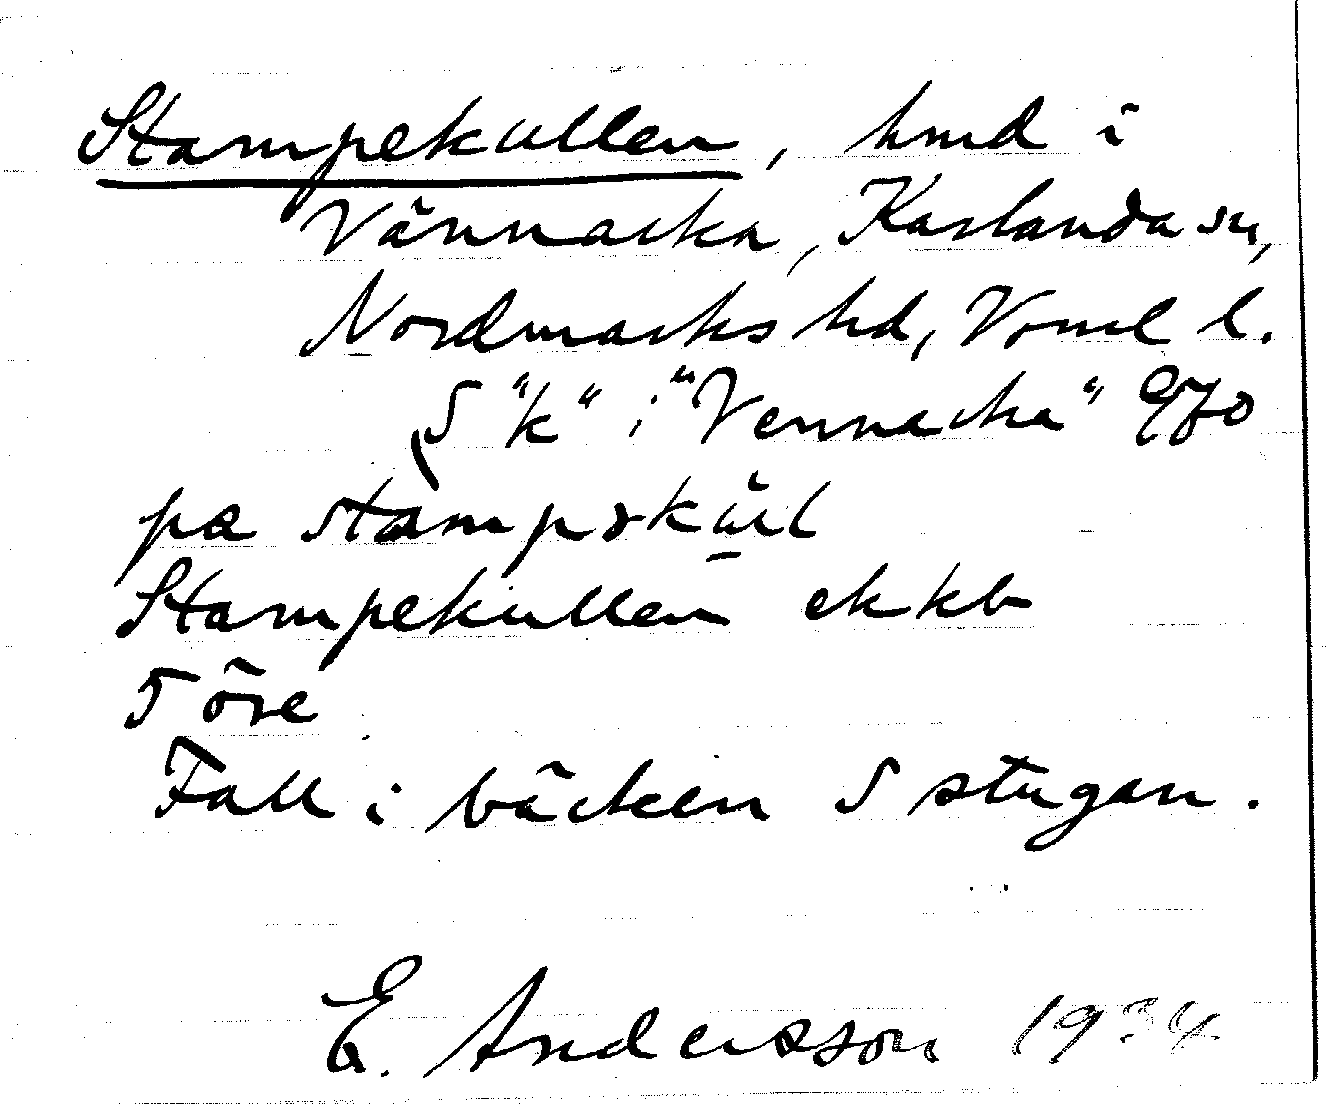 Stampekullen, hmd i
Vännacka, Karlanda sn,
Nordmarks hd, Vrml l.
S "k" i "Vennacka" Gfo
på
Stampekullen ekkb
Töre
Fall i bäcken S stugan.
E. Andersson 1934